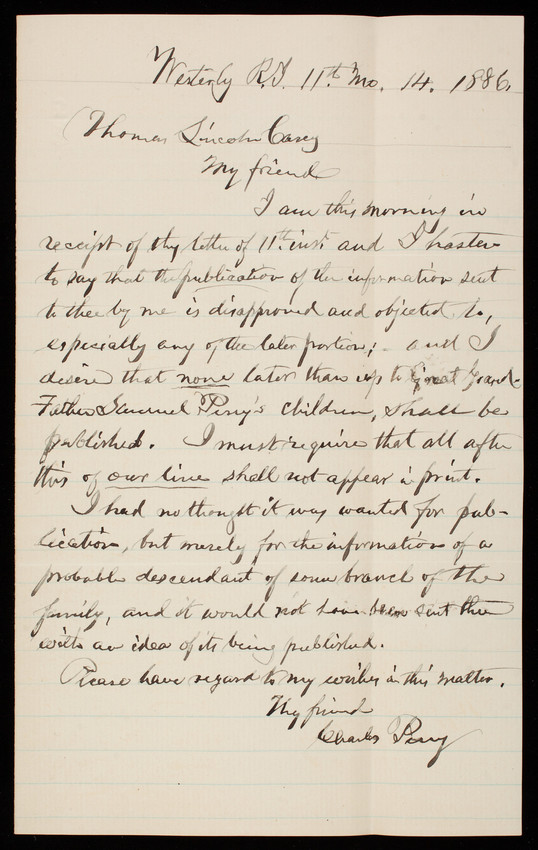 Westerly R.I. 11th Mo. 14. 1886.
Thomas Lincoln Casey
My friend
I am this morning in
receipt of thy letter of 11th inst and I hasten
to say that the publication of the information sent
to thee by me is disapproved and objected to,
especially any of the later portion; and I
desire that none later than up to Great Grand-
Father Samuel Perry's children, shall be
published. I must require that all after
this of our line shall not appear in print.
I had no thought it was wanted for pub-
lication, but merely for the information of a
probable descendant of some branch of the
family, and it would not have been sent thee
with an idea of its being published.
Please have regard to my wishes in this matter.
Thy friend
Charles Perry